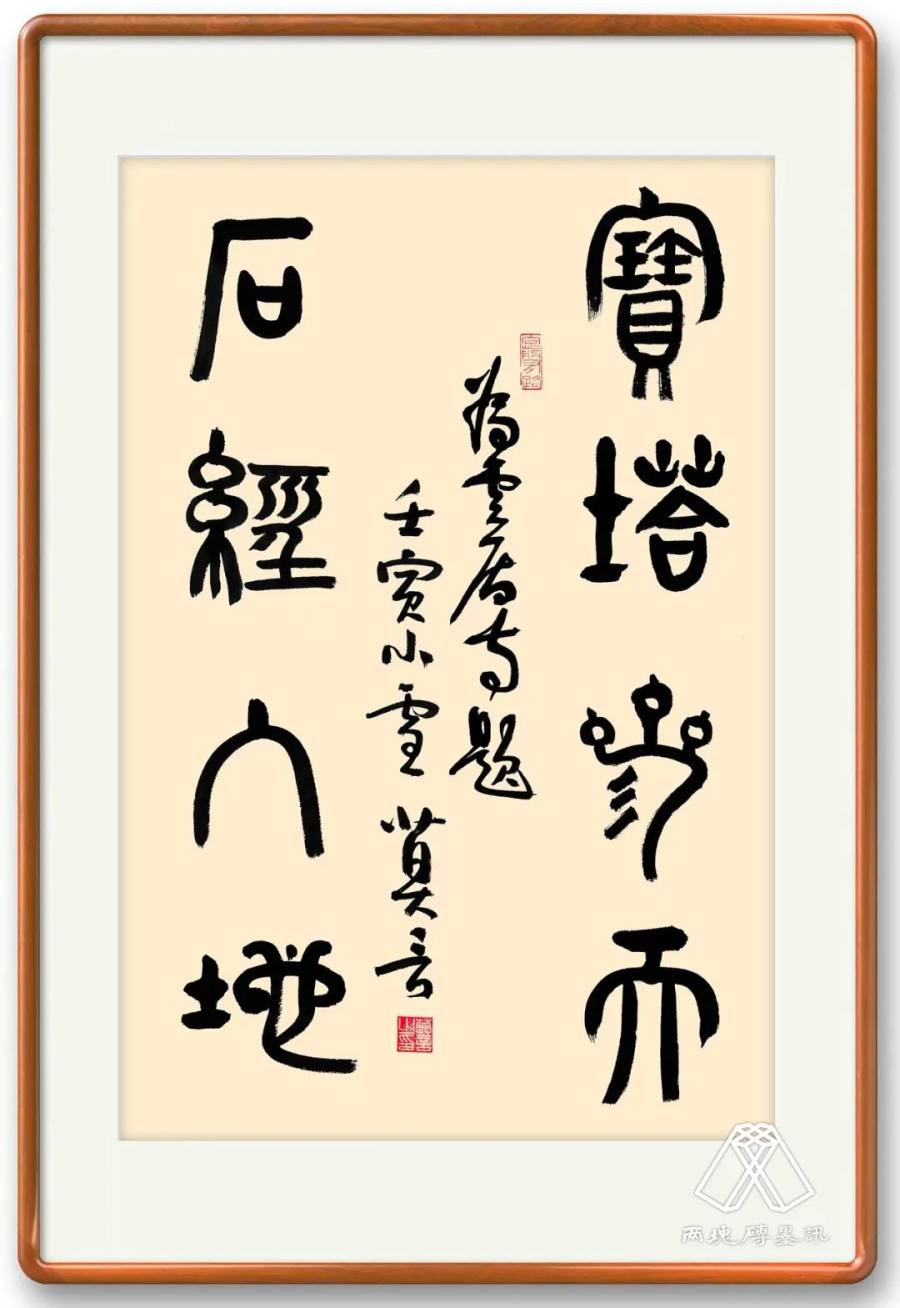 寶塔參天
為雲居寺題
壬寅小雪 莫言
石經入地
两塊磚墨訊